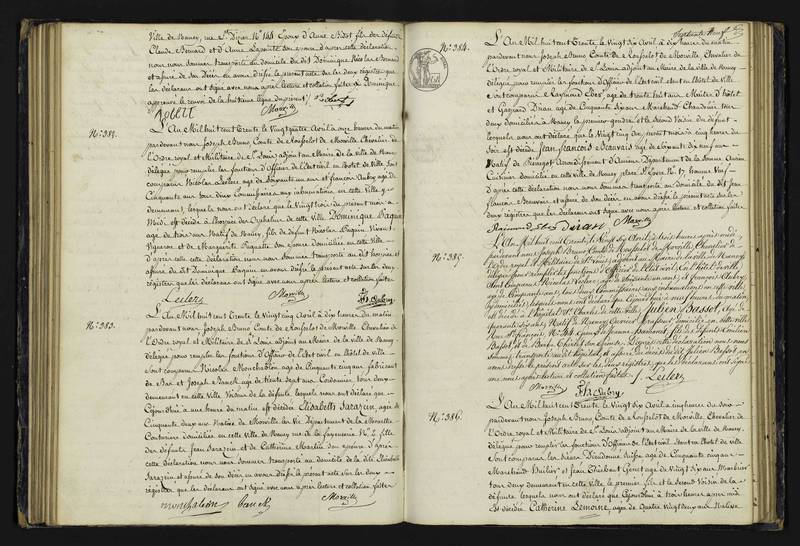 Ville de Nancy, rue St. Dizier N.° 144 Epoux d'Anne Bidot fils de défunt
Claude Bernard et d'Anne son épouse d'après cette déclaration
nous nous sommes transporté au domicile dudit Dominique Nicolas Bernard
et assuré de son décès en avons dressé le présent acte sur les deux registres que
les déclarans ont signé avec nous après lecture et collation faites
approuvé le renvoi de la huitième ligne du présent
Moreville
N.° 382.
L'An Mil huit cent Trente le Vingt quatre Avril à onze heures du matin
pardevant nous Joseph Bruno Comte de Rouffelot de Morville Chevalier de
l'Ordre royal et Militaire de St. Louis adjoint au Maire de la Ville de Nancy
délégué pour remplir les fonctions d'Officier de l'état civil en l'hôtel de Ville sont
comparus Nicolas Leclerc agé de soixante un ans et françois Aubry agé de
Cinquante ans tous deux Commissaires aux inhumations en cette Ville y
demeurant, lesquels nous ont déclaré que le Vingt trois du présent mois à
Midi est décédé à l'hospice des Orphelins de cette Ville Dominique Paquin
agé de trois ans Natif de Nancy, fils de défunt Nicolas Paquin Vivant
Vigneron et de Marguerite son épouse domiciliée en cette Ville
D'après cette déclaration nous nous sommes transporté au dit hospice et
assuré du dit Dominique Paquin en avons dressé le présent acte sur les deux
registres que les déclarans ont signé avec nous après lecture et collation faites
Leclerc Morville fr Aubry
N.° 383.
L'An Mil huit cent Trente le Vingt cinq Avril à dix heures du matin
pardevant nous Joseph Bruno Comte de Rouffelot de Morville Chevalier de
l'Ordre royal et Militaire de St. Louis adjoint au Maire de la Ville de Nancy
délégué pour remplir les fonctions d'Officier de l'état civil en l'hôtel de Ville
sont comparus Nicolas Monchablon agé de cinquante cinq ans fabricant
de Bas et Joseph agé de trente sept ans Cordonnier tous deux
demeurant en cette Ville Voisins de la défunte, lesquels nous ont déclaré que
Cejourd'hui à une heure du matin est décédée Elisabeth Sarazin, agée de
Cinquante deux ans Native de Morville les Vic Département de la Meurthe
Couturière domiciliée en cette Ville de Nancy rue de la fayencerie fille
des défunts Jean Sarazin et de Catherine Martin son épouse d'après
cette déclaration nous nous sommes transporté au domicile de la dite Elisabeth
Sarazin et assuré de son décès en avons dressé le présent acte sur les deux
registres que les déclarans ont signé avec nous après lecture et collation faites
monchablon Morville
N.° 384.
L'An Mil huit cent Trente le Vingt six Avril à dix heures du matin
pardevant nous Joseph Bruno Comte de Rouffelot de Morville, Chevalier de
l'Ordre royal et Militaire de St. Louis adjoint au Maire de la Ville de Nancy
délégué pour remplir les fonctions d'Officier de l'état civil étant en l'hôtel de Ville
sont comparus Raymond agé de trente huit ans Maître d'hôtel
et Gaspard agé de Cinquante six ans Marchand Chandelier tous
deux domiciliés à Nancy le premier gendre et le second Voisin du défunt
lesquels nous ont déclaré que le Vingt cinq du présent mois à cinq heures du
soir est décédé Jean françois Beauvais agé de soixante dix neuf ans
Natif de Arrondissement d'Amiens Département de la Somme Ancien
Cuisinier domicilié en cette ville de Nancy place N.° 17 homme Veuf
D'après cette déclaration nous nous sommes transporté au domicile du dit Jean
françois Beauvais et assuré de son décès, en avons dressé le présent acte sur les
deux registres que les déclarans ont signé avec nous après lecture et collation faites
Morville
N.° 385.
L'An Mil huit cent Trente le Vingt six Avril à trois heures après midi
pardevant nous Joseph Bruno Comte de Rouffelot de Morville, Chevalier de
l'Ordre royal et Militaire de St. Louis, adjoint au Maire de la Ville de Nancy
délégué pour remplir les fonctions d'Officier de l'état civil, en l'hôtel de Ville,
sont comparus Nicolas Leclerc agé de soixante un ans, et françois Aubry
agé de Cinquante ans, tous deux Commissaires aux inhumations en cette ville
y demeurant, lesquels nous ont déclaré que Cejourd'hui à neuf heures du matin,
est décédé à l'hôpital St. Charles de cette ville Julien Bassot, agé de
quarante six ans, Natif de Nancy
D'après cette déclaration nous nous
sommes transporté au dit hôpital, et assuré du décès du dit Julien Bassot, en
avons dressé le présent acte sur les deux registres, que les déclarans ont signé
avec nous, après lecture et collation faites. J. Leclerc
Morville fr Aubry
N.° 386.
L'An Mil huit cent Trente le Vingt six Avril à cinq heures du soir
pardevant nous Joseph Bruno Comte de Rouffelot de Morville Chevalier de
l'Ordre royal et Militaire de St. Louis adjoint au Maire de la Ville de Nancy,
délégué pour remplir les fonctions d'Officier de l'état civil étant en l'hôtel de Ville
sont comparus les Sieurs Dieudonné agé de Cinquante cinq ans
Marchand et Jean agé de Vingt six ans
tous deux demeurant en cette Ville, le premier fils et le second Voisin de la
défunte, lesquels nous ont déclaré que Cejourd'hui à trois heures après midi
est décédée Catherine Lemoine, agée de Quatre Vingt deux ans Native